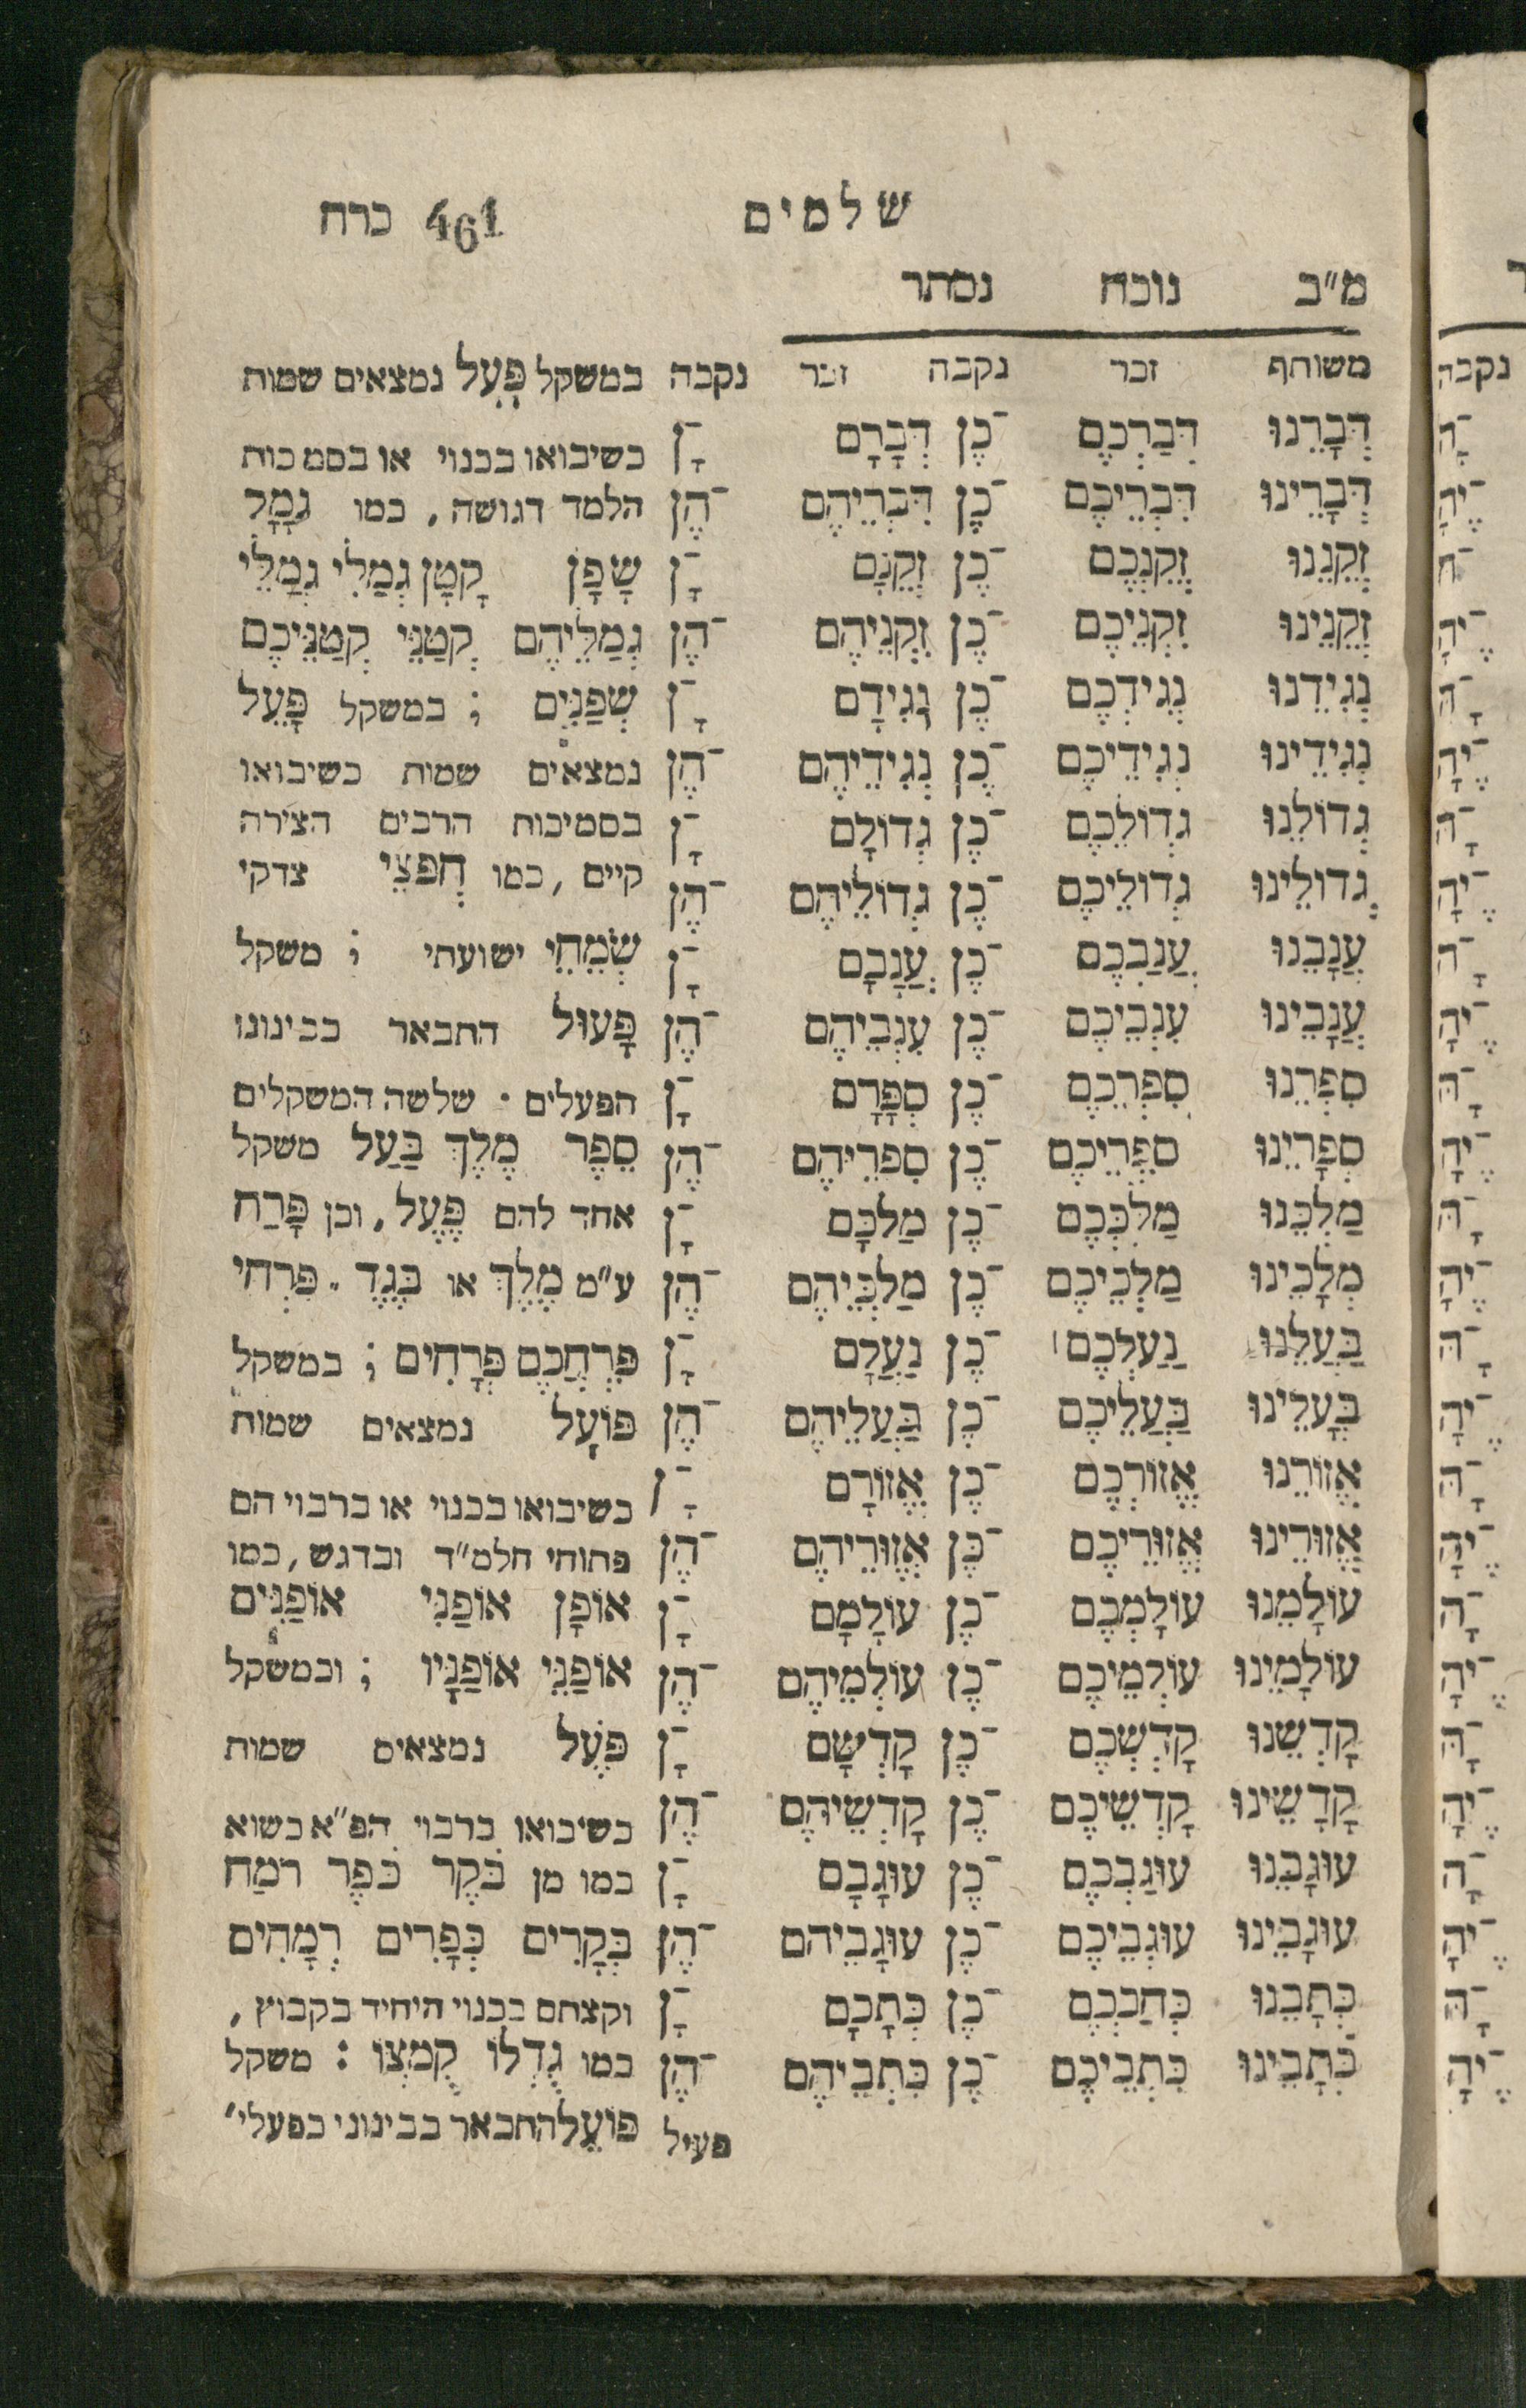 שלמים 461 כרח
מ״ב נוכח נסתר
משותף זכר נקבה זכר נקבה
דְּבָרֵנוּ דְּבַרְכֶם ־כֶן דְּבָרָם ־ָן
דְּבָרֵינוּ דִּבְרֵיכֶם ־כֶן דִּבְרֵיהֶם ־הֶן
זְקֵנֵנוּ זְקֵנְכֶם ־כֶן זְקֵנָם ־ָן
זְקֵנֵינוּ זִקְנֵיכֶם ־כֶן זִקְנֵיהֶם ־הֶן
נְגִידֵנוּ נְגִידְכֶם ־כֶן נְגִידָם ־ָן
נְגִידֵינוּ נְגִידֵיכֶם ־כֶן נְגִידֵיהֶם ־הֶן
גְדוֹלֵנוּ גְדוֹלְכֶם ־כֶן גְדוֹלָם ־ָן
גְדוֹלֵינוּ גְדוֹלֵיכֶם ־כֶן גְדוֹלֵיהֶם ־הֶן
עֲנָבֵנוּ עֲנַבְכֶם ־כֶן עֲנָבָם ־ָן
עֲנָבֵינוּ עִנְבֵיכֶם ־כֶן עִנְבֵיהֶם ־הֶן
סִפְרֵנוּ סִפְרְכֶם ־כֶן סִפְרָם ־ָן
סְפָרֵינוּ סִפְרֵיכֶם ־כֶן סִפְרֵיהֶם ־הֶן
מַלְכֵּנוּ מַלְכְּכֶם ־כֶן מַלְכָּם ־ָן
מְלָכֵינוּ מַלְכֵּיכֶם ־כֶן מַלְכֵּיהֶם ־הֶן
בַּעֲלֵנוּ נַעַלְכֶם ־כֶן נַעֲלָם ־ָן
בְּעָלֵינוּ בַּעֲלֵיכֶם ־כֶן בַּעֲלֵיהֶם ־הֶן
אֱזוֹרֵנוּ אֱזוֹרְכֶם ־כֶן אֱזוֹרָם ־ָן
אֱזוֹרֵינוּ אֱזוֹרֵיכֶם ־כֶן אֱזוֹרֵיהֶם ־הֶן
עוֹלָמֵנוּ עוֹלָמְכֶם ־כֶן עוֹלָמָם ־ָן
עוֹלָמֵינוּ עוֹלְמֵיכֶם ־כֶן עוֹלְמֵיהֶם ־הֶן
קָדְשֵׁנוּ קָדְשְׁכֶם ־כֶן קָדְשָׁם ־ָן
קָדָשֵׁינוּ קָדְשֵׁיכֶם ־כֶן קָדְשֵׁיהֶם ־הֶן
עוּגָבֵנוּ עוּגַבְכֶם ־כֶן עוּגָבָם ־ָן
עוּגָבֵינוּ עוּגְבֵיכֶם ־כֶן עוּגָבֵיהם ־הֶן
כְּתָבֵנוּ כְּתַבְכֶם ־כֶן כְּתָבָם ־ָן
כְּתָבֵינוּ כִּתְבֵיכֶם ־כֶן כִּתְבֵיהֶם ־הֶן
במשקל פָּעָל נמצאים שמות
כשיבואו בכנוי או בסמכות
הלמד דגושה, כמו גָמָל
שָפָן קָטָן גְמַלִי גְמַלֵי
גְמַלֵיהֶם קְטַנֵּי קְטַנֵּיכֶם
שְפַנִּים ; במשקל פָּעֵל
נמצאים שמות כשיבואו
בסמיכות הרבים הצירה
קיים, כמו חֲפֵצֵי צדקי
שְׂמֵחֵי ישועתי ; משקל
פָּעוּל התבאר בבינוני
הפעלים . שלשה המשקלים
סֵפֶר מֶלֶךְ בַּעַל משקל
אחד להם פֶּעֶל, וכן פָּרַח
ע״מ מֶלֶךְ או בֶּגֶד . פִּרְחִי
פִּרְחֲכֶם פְּרָחִים ; במשקל
פּוֹעָל נמצאים שמות
כשיבואו בכנוי או ברבוי הם
פתוחי הלמ״ד ובדגש, כמו
אוֹפָן אוֹפַנִּי אוֹפַנִּים
אוֹפַנֵּי אוֹפַנָּיו ; ובמשקל
פֹּעֶל נמצאים שמות
כשיבואו ברבוי הפ״א בשוא
כמו מן בֹּקֶר כֹּפֶר רֹמַח
בְּקָרִים כְּפָרִים רְמָחִים
וקצתם בכנוי היחיד בקבוץ,
כמו גֻּדְלוֹ קֻמְצוֹ : משקל
פּוֹעֵל התבאר בבינוני בפעלי׳
פעיל
־ָהּ
־ֶיהָ